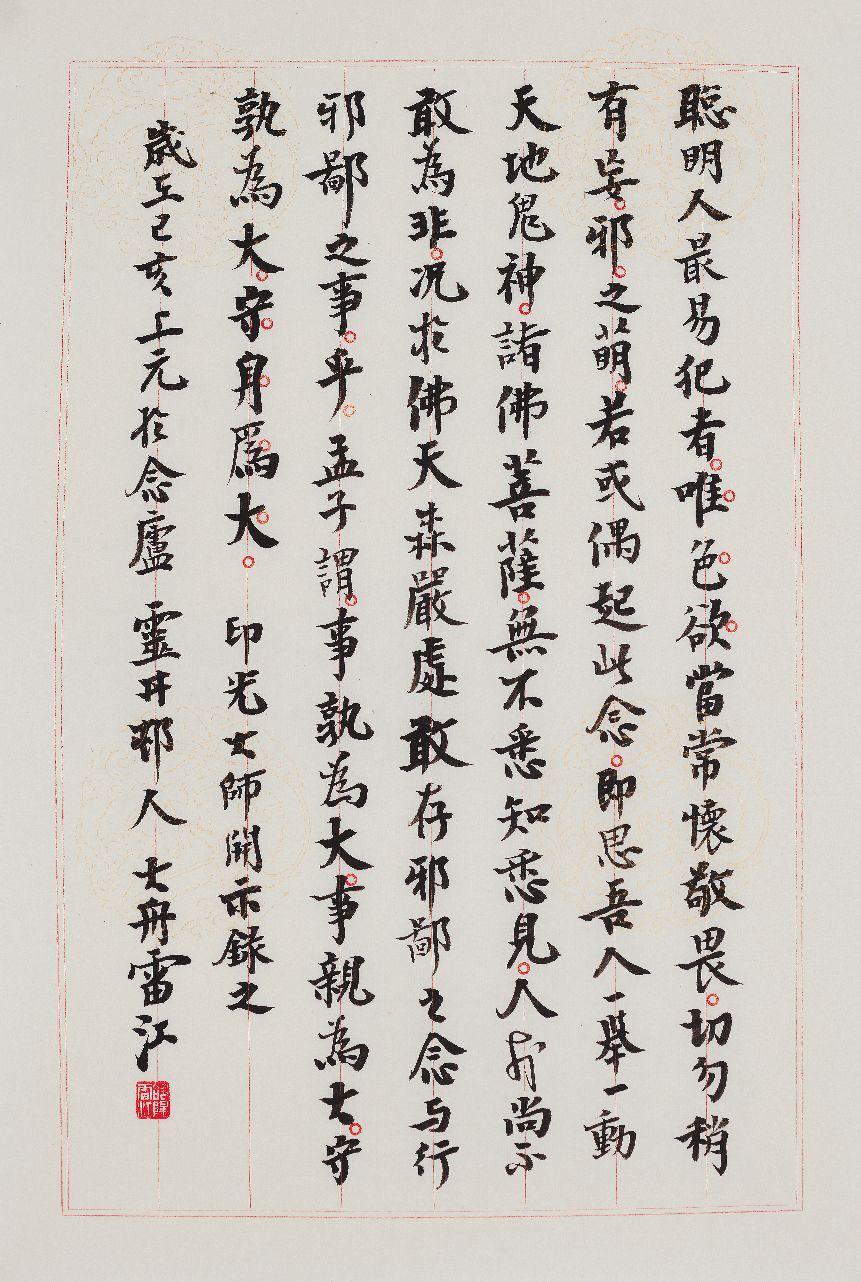 聡明人最易犯者唯色欲當常懷敬畏切勿稍
有妄邪之萌若或偶起此念即思吾人一舉一動
天地鬼神諸佛菩薩無不悉知悉見人前尚不
敢為非況於佛天森嚴處敢存邪鄙之念与行
邪鄙之事乎孟子謂事孰為大事親為大守
孰為大守身爲大 印光大師開示錄之
歲在己亥上元於念廬 靈井邨人 大舟雷江